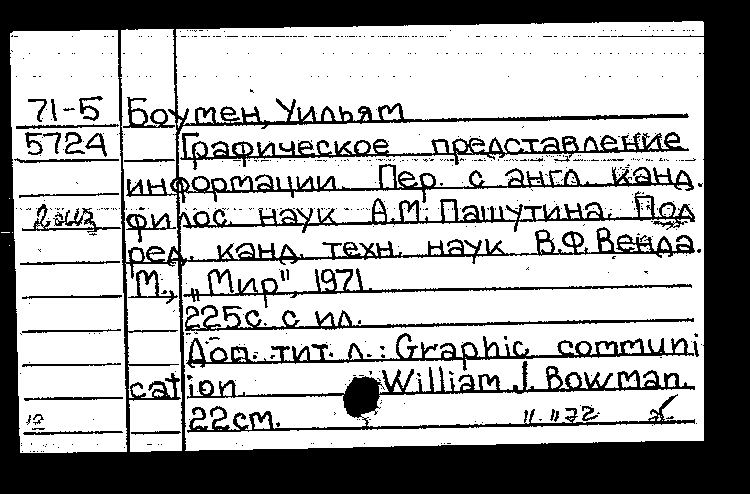 71-5 Боумен, Уильям
5724 Графическое представление
информации. Пер. с англ. канд.
2 экз филос. наук А.М. Пашутина. Под
ред. канд. техн. наук В.Ф. Венда.
М., „Мир", 1971.
225с. с ил.
Доп. тит. л.: Graphic communi
cation. William J. Bowman.
22см.